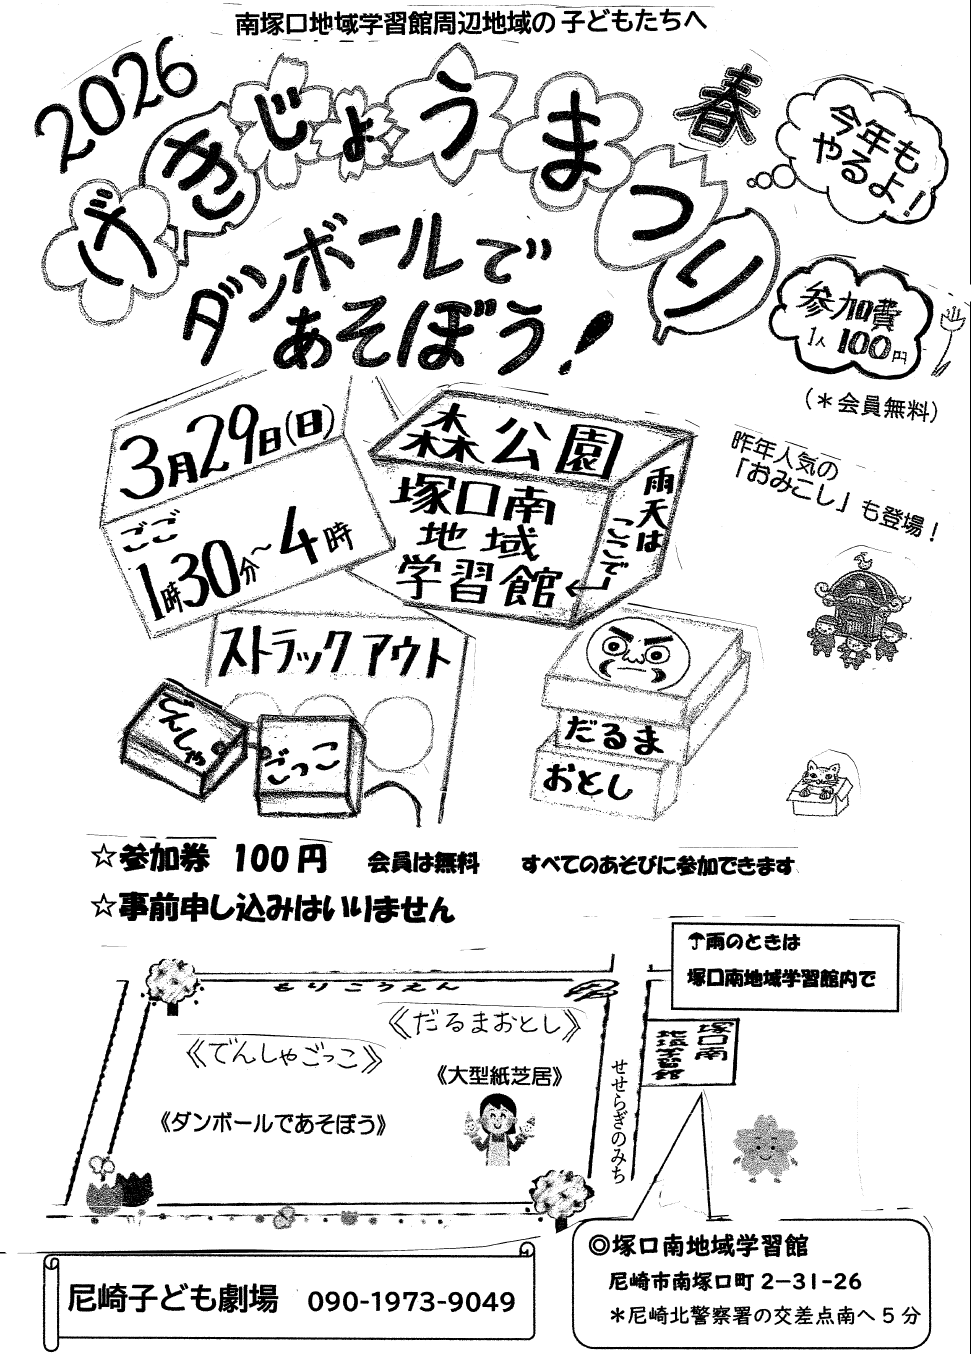 南塚口地域学習館周辺地域の子どもたちへ
2026
げきじょうまつり
春
今年も
やるよ！
ダンボールで
あそぼう！
参加費
1人 100円
（＊会員無料）
3月29日（日）
ごご
1時30分～4時
森公園
塚口南
地域
学習館
雨天は
ここで！
昨年人気の
「おみこし」も登場！
ストラックアウト
でんしゃ
ごっこ
だるま
おとし
☆参加券 100円 会員は無料 すべてのあそびに参加できます
☆事前申し込みはいりません
☂雨のときは
塚口南地域学習館内で
もりこうえん
《だるまおとし》
《でんしゃごっこ》
《大型紙芝居》
《ダンボールであそぼう》
せせらぎのみち
塚口南
地域学習館
◎塚口南地域学習館
尼崎市南塚口町2－31-26
＊尼崎北警察署の交差点南へ5分
尼崎子ども劇場 090-1973-9049